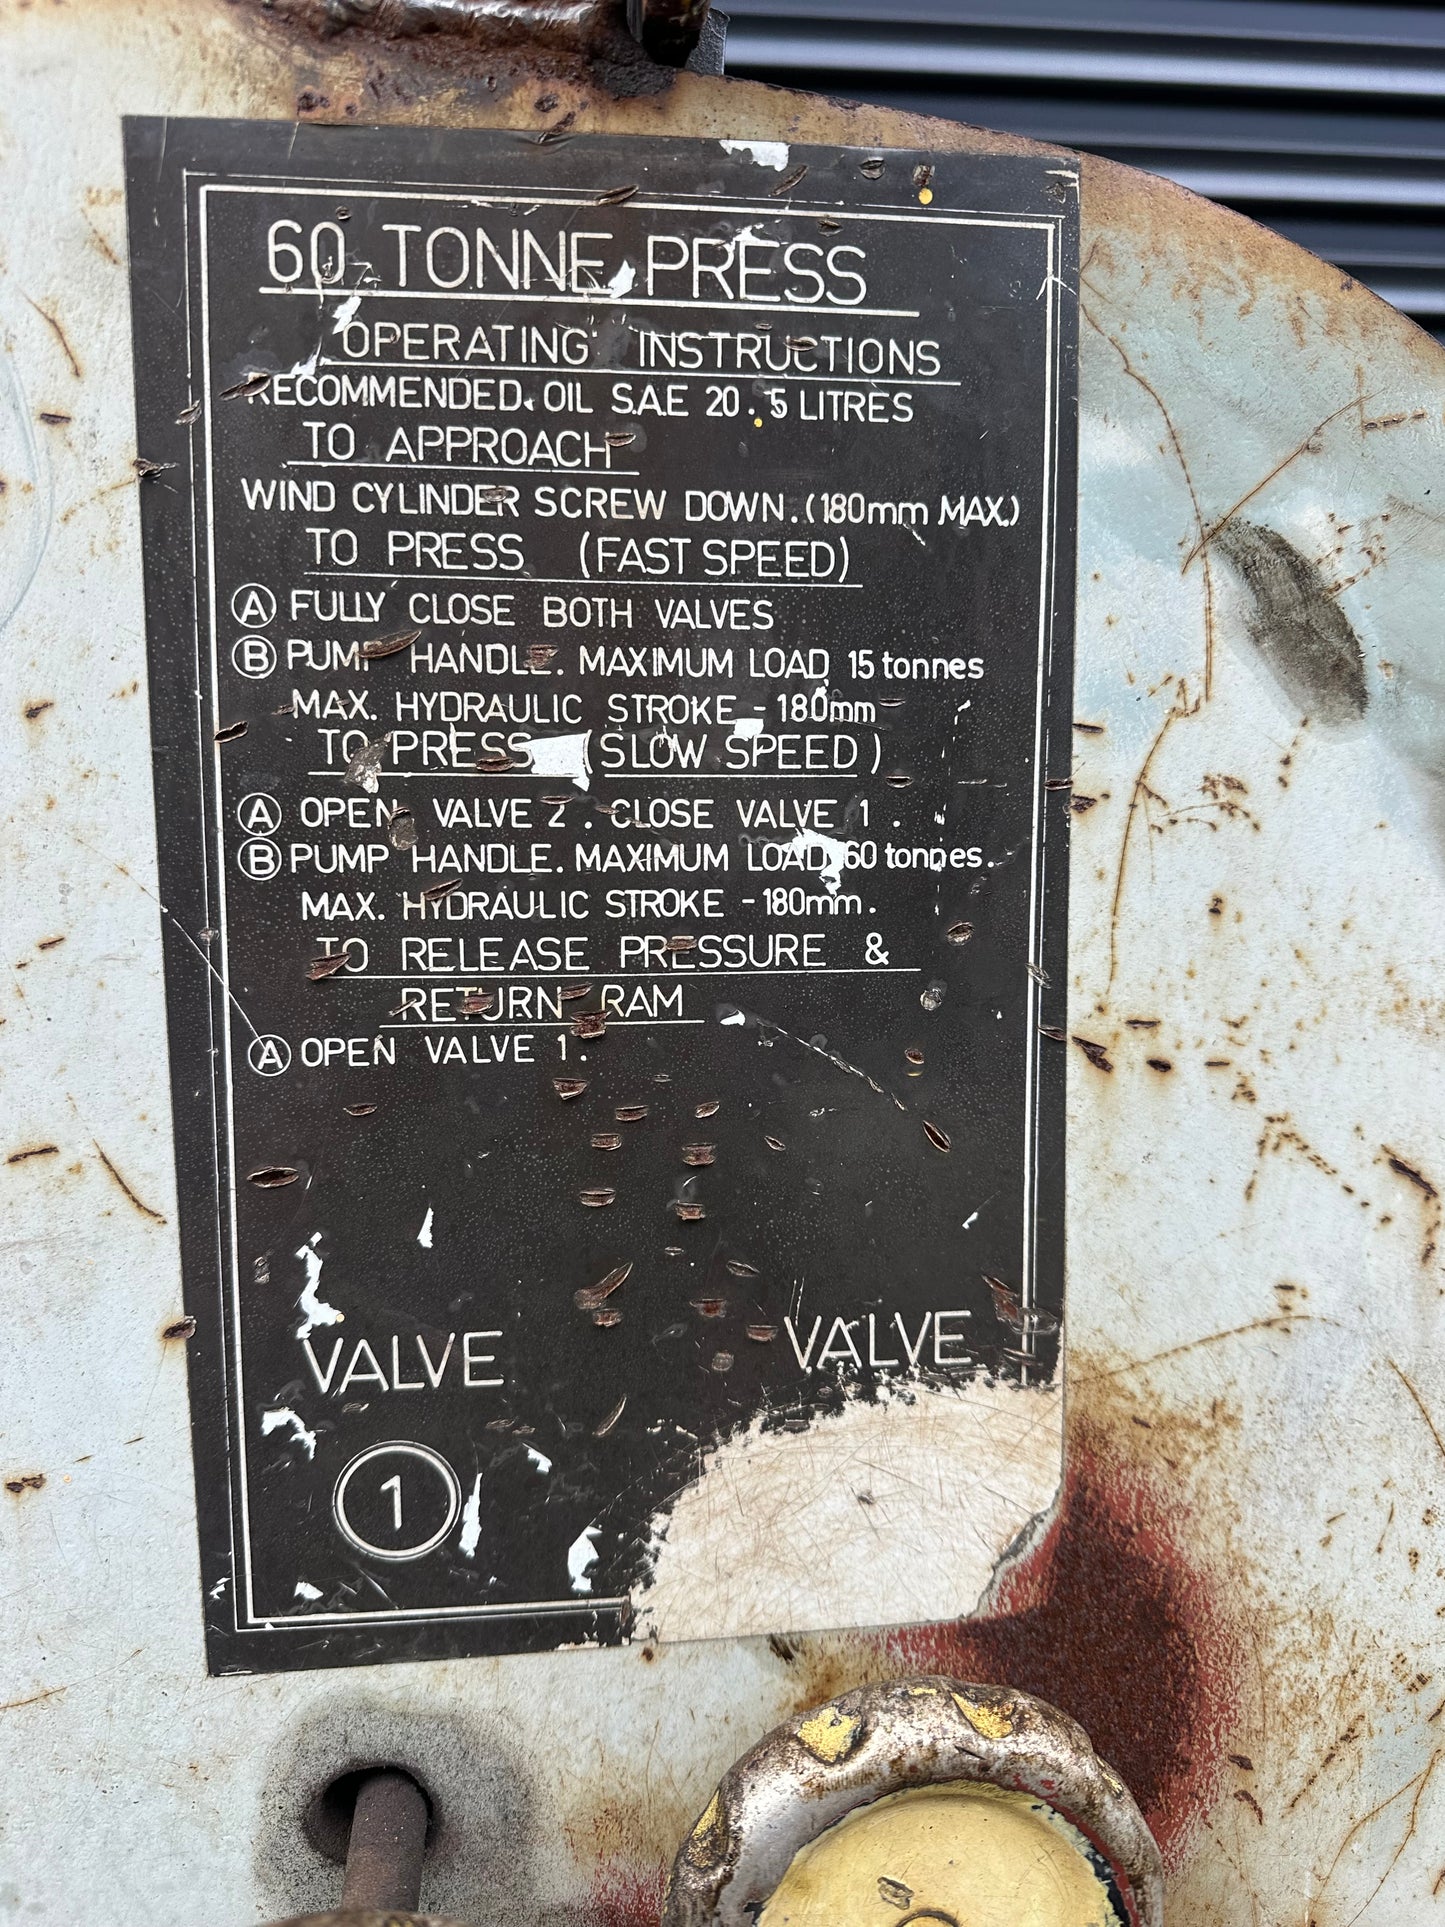 60 TONNE PRESS
OPERATING INSTRUCTIONS
RECOMMENDED. OIL S.A.E 20. 5 LITRES
TO APPROACH
WIND CYLINDER SCREW DOWN. (180mm MAX.)
TO PRESS (FAST SPEED)
Ⓐ FULLY CLOSE BOTH VALVES
Ⓑ PUMP HANDLE. MAXIMUM LOAD 15 tonnes
MAX. HYDRAULIC STROKE - 180mm
TO PRESS (SLOW SPEED)
Ⓐ OPEN VALVE 2. CLOSE VALVE 1.
Ⓑ PUMP HANDLE. MAXIMUM LOAD 60 tonnes.
MAX. HYDRAULIC STROKE - 180mm.
TO RELEASE PRESSURE &
RETURN RAM
Ⓐ OPEN VALVE 1.
VALVE VALVE
①